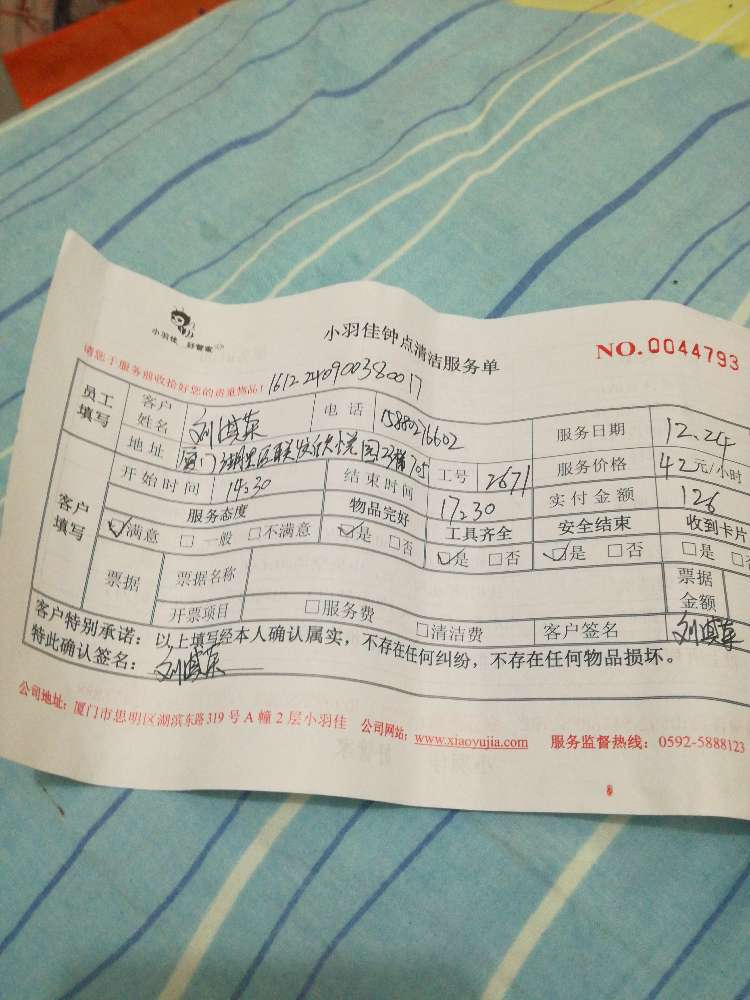 小羽佳 好管家
小羽佳钟点清洁服务单
NO.0044793
请您于服务前收拾好您的贵重物品!
1612240900380017
员工填写 客户姓名 刘 电话 15880276602 服务日期 12.24
地址 厦门湖里区联发欣悦园23楼705 工号 2671 服务价格 42元/小时
客户填写 开始时间 14.30 结束时间 17.30 实付金额 126
服务态度 物品完好 工具齐全 安全结束 收到卡片
☑满意 □一般 □不满意 ☑是 □否 ☑是 □否 ☑是 □否 □是 □否
票据 票据名称 票据金额
开票项目 □服务费 □清洁费 客户签名 刘
客户特别承诺:以上填写经本人确认属实,不存在任何纠纷,不存在任何物品损坏。
特此确认签名: 刘
公司地址:厦门市思明区湖滨东路319号A幢2层小羽佳 公司网站:www.xiaoyujia.com 服务监督热线:0592-5888123